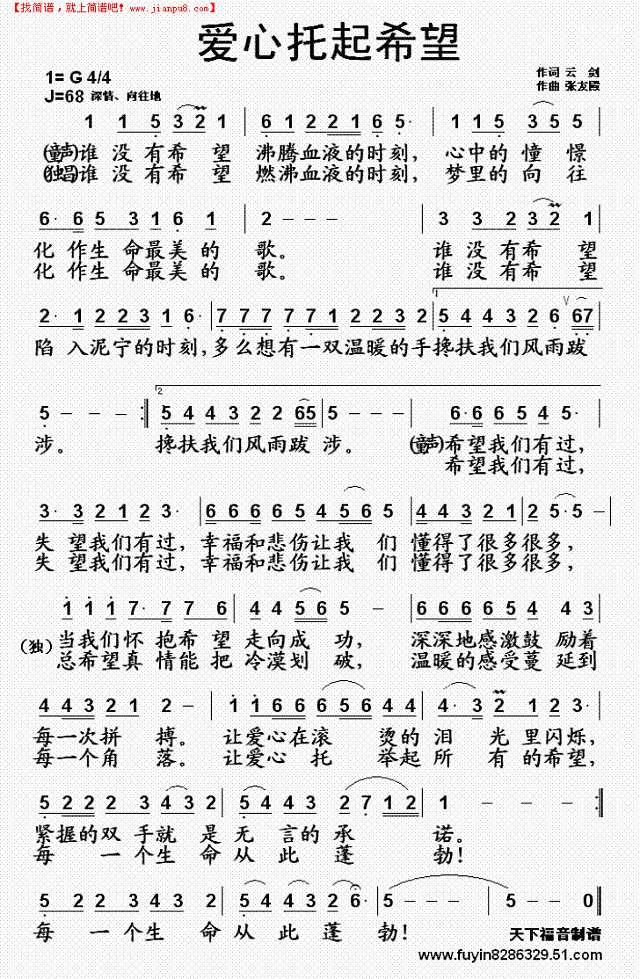 【找简谱，就上简谱吧！www.jianpu8.com】
爱心托起希望
1= G 4/4
作词 云 剑
J=68 深情、向往地
作曲 张友殿
1 1 5 3 2 1 | 6 1 2 1 6 5· | 1 1 5 3 5 5 |
(童声)谁没有希 望 沸腾血液的时刻, 心中的 憧 憬
(独唱)谁没有希 望 燃沸血液的时刻, 梦里的 向 往
6· 6 5 3 1 6 | 2· 1 6 1 | 2 - - | 3 1 5 3 2 1 |
化 作生 命最美 的 歌。 谁没有希 望
化 作生 命最美 的 歌。 谁没有希 望
2· 1 2 2 3 1 6· | 7 7 7 7 7 1 2 2 3 2 | 5 4 4 3 2 6 67 |
陷 入泥宁的时刻,多么想有一双温暖的手搀扶我们风雨跋
5 - - - :| 5 4 4 3 2 2 65 | 5 - - - | 6· 6 6 5 4 5· |
涉。 搀扶我们风雨跋 涉。 (童声)希望我们有过,
希望我们有过,
3· 3 2 1 2 3· | 6 6 6 6 5 4 5 6 5 | 4 4 3 2 1 | 2 5· 5 - |
失 望我们有过, 幸福和悲伤让我 们 懂得了很多很多,
失 望我们有过, 幸福和悲伤让我 们 懂得了很多很多,
1 1 1 7· 7 7 6 | 4 4 5 6 5 - | 6 6 6 5 4 3 4 5 |
(独) 当我们怀 抱希 望 走向成 功, 深深地感激鼓 励着
总希望真 情能 把 冷漠划 破, 温暖的感受蔓 延到
4 4 3 2 - | 1 1 6 6 6 5 6 4 4 | 4 3 2 1 2 3· |
每一次拼 搏。 让爱心在滚 烫的 泪 光 里闪烁,
每一个角 落。 让爱心 托 举起 所 有 的希望,
5 2 2 2 2 4 3 2 | 5 4 4 3 2 7 1 2 | 1 - - - :|
紧握的双 手就 是 无 言的 承 诺。
每 一个生 命 从 此 蓬 勃!
5 2 2 2 4 3 2 | 5 4 4 3 2 6· | 5 - - - | 5 - - 0 ‖
每 一个生 命 从 此 蓬 勃!
天下福音制谱
www.fuyin8286329.51.com